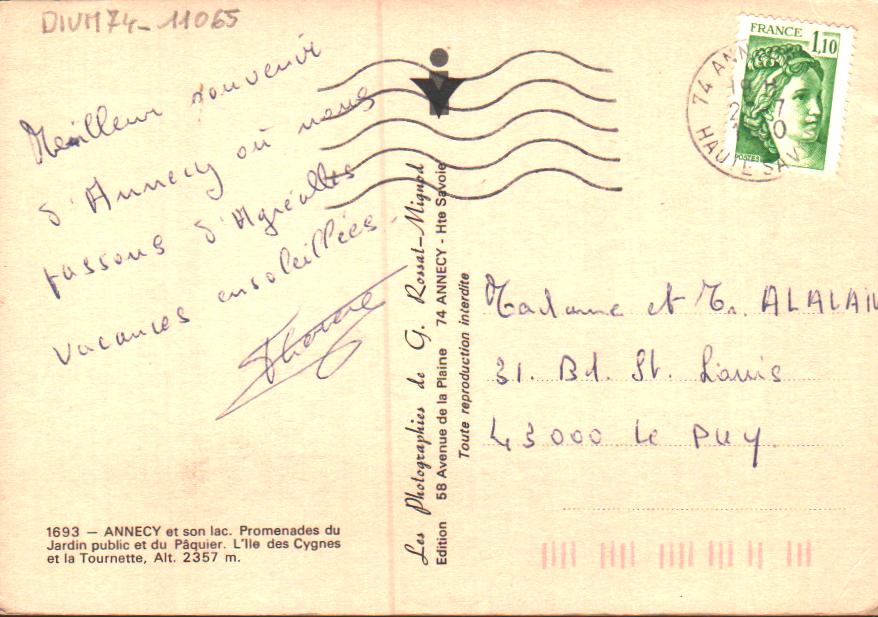 DIVM74-11065
Meilleur souvenir
d'Annecy où nous
passons d'Agréables
vacances ensoleillées.
1693 — ANNECY et son lac. Promenades du
Jardin public et du Pâquier. L'Ile des Cygnes
et la Tournette, Alt. 2357 m.
Les Photographies de G. Rossat-Mignod
Edition 58 Avenue de la Plaine 74 ANNECY - Hte Savoie
Toute reproduction interdite
FRANCE 1,10
POSTES
74 ANN
HAUTE SAV
Madame et Mr. ALALAIN
31. Bd. St. Louis
43000 Le PUY.